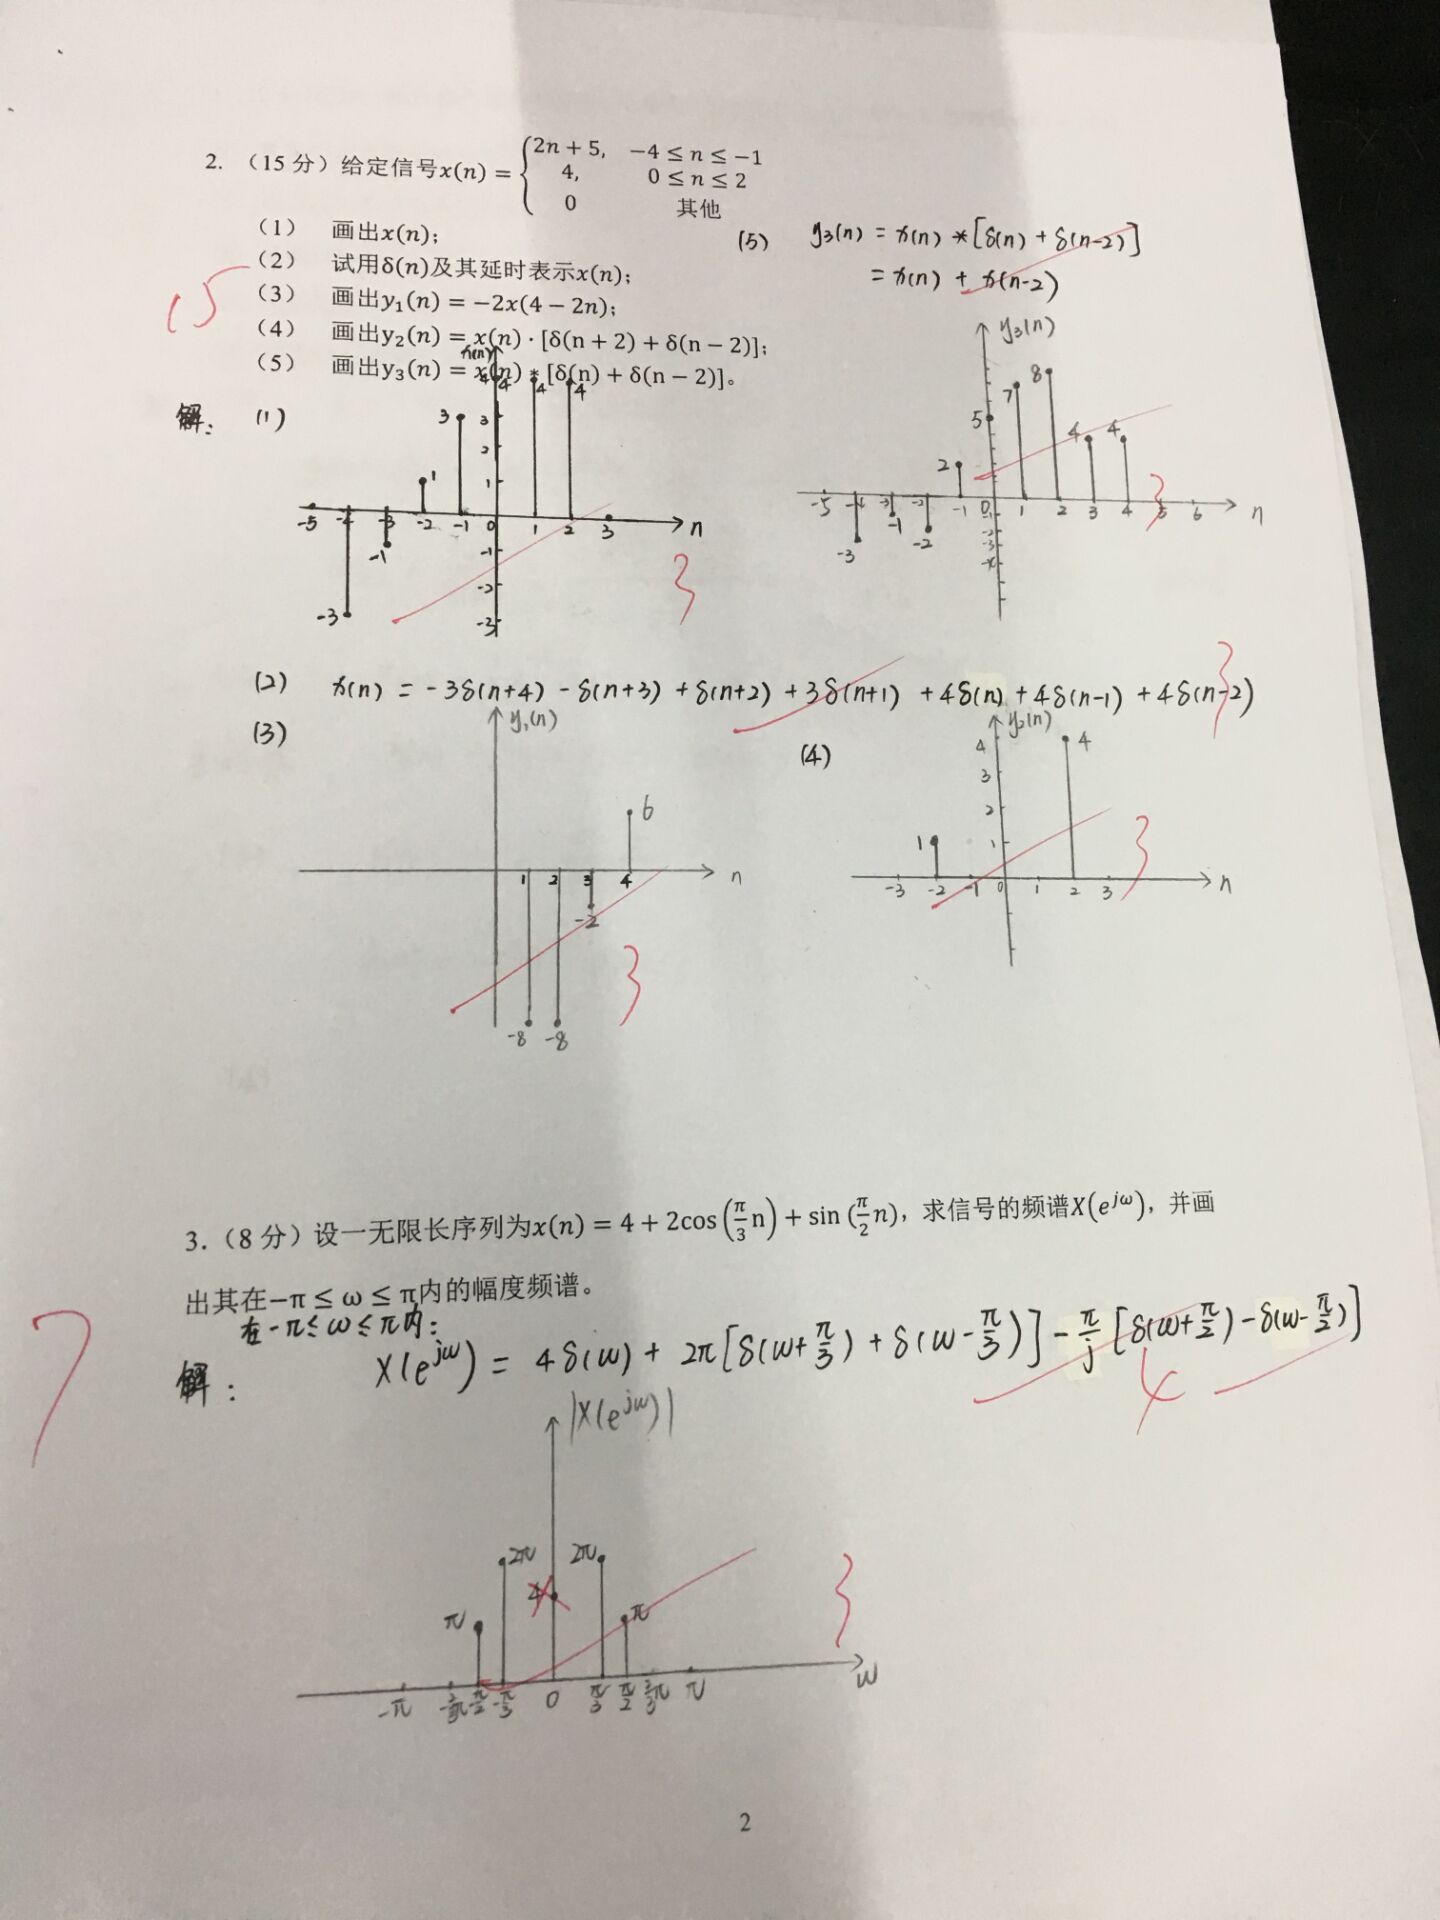 2. （15 分）给定信号x(n) = {2n + 5, −4 ≤ n ≤ −1
4, 0 ≤ n ≤ 2
0 其他
（1） 画出x(n)；
（2） 试用δ(n)及其延时表示x(n)；
（3） 画出y₁(n) = −2x(4 − 2n)；
（4） 画出y₂(n) = x(n) · [δ(n + 2) + δ(n − 2)]；
（5） 画出y₃(n) = x(n) * [δ(n) + δ(n − 2)]。
15
(5) y₃(n) = x(n) * [δ(n) + δ(n-2)]
= x(n) + x(n-2)
解: (1)
x(n)
4 4 4
3 3
2
1 1
-5 -4 -3 -2 -1 0 1 2 3 n
-1 -1
-2
-3 -3
3
y₃(n)
8
7
5
4 4
2
-5 -4 -3 -2 -1 0 1 2 3 4 5 6 n
-3 -1 -2
-1
-2
-3
-4
3
(2) x(n) = -3δ(n+4) - δ(n+3) + δ(n+2) + 3δ(n+1) + 4δ(n) + 4δ(n-1) + 4δ(n-2)
3
(3) y₁(n)
6
1 2 3 4 n
-2
-8 -8
3
(4) y₂(n)
4 4
3
2
1 1
-3 -2 -1 0 1 2 3 n
3
3.（8 分）设一无限长序列为x(n) = 4 + 2cos(π/3 n) + sin(π/2 n)，求信号的频谱X(e^{jω})，并画
出其在−π ≤ ω ≤ π内的幅度频谱。
7
在 -π≤ω≤π内:
解: X(e^{jω}) = 4δ(ω) + 2π[δ(ω+π/3) + δ(ω-π/3)] - π/j [δ(ω+π/2) - δ(ω-π/2)]
4
|X(e^{jω})|
2π 2π
4
π π
-π -2/3π -π/2 -π/3 0 π/3 π/2 2/3π π ω
3
2